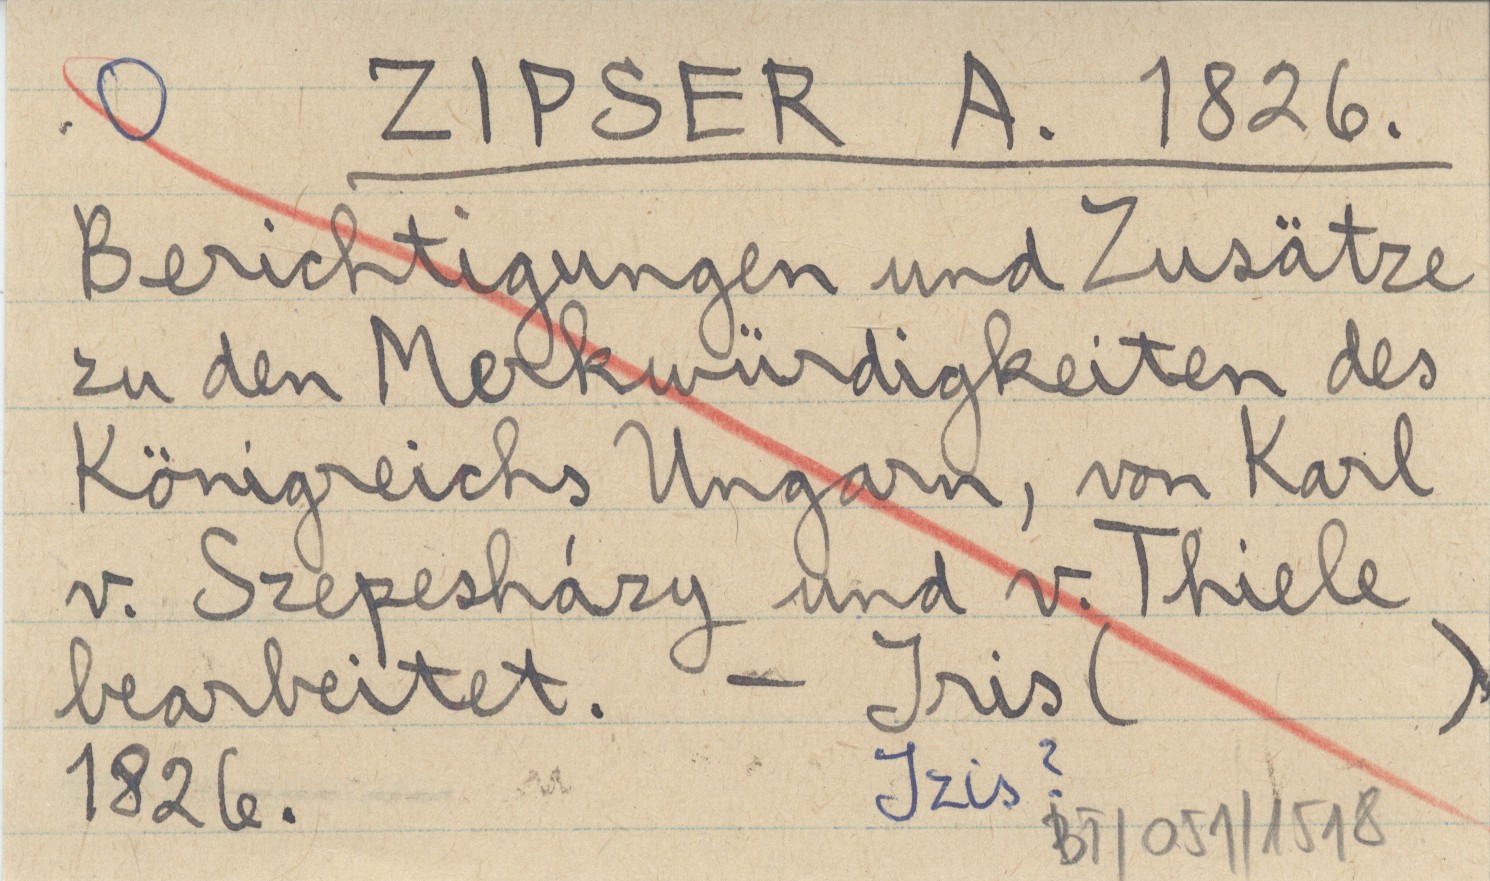 ZIPSER A. 1826.
Berichtigungen und Zusätze
zu den Merkwürdigkeiten des
Königreichs Ungarn, von Karl
v. Szepesházy und v. Thiele
bearbeitet. – Iris ( ),
1826. Izis?
BT/051/1518